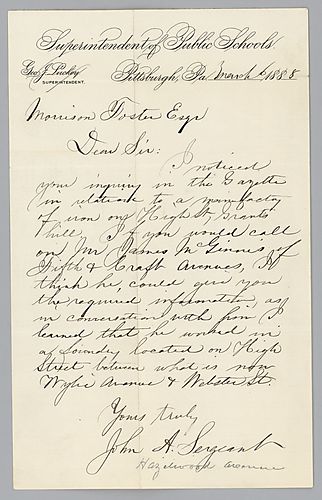 Superintendent of Public Schools
Geo. J. Luckey
SUPERINTENDENT.
Pittsburgh, Pa. March 6 1888
Morrison Foster Esqr
Dear Sir: I noticed
your inquiry in the Gazette
in relation to a manufactory
of iron on High St. Grants
hill. If you would call
on Mr James McGinnis of
Fifth & Craft Avenues, I
think he, could give you
the required information as
in conversation with him I
learned that he worked in
a foundry located on High
Street between what is now
Wylie Avenue & Webster St.
Yours truly,
John A. Sergeant
Hazelwood avenue